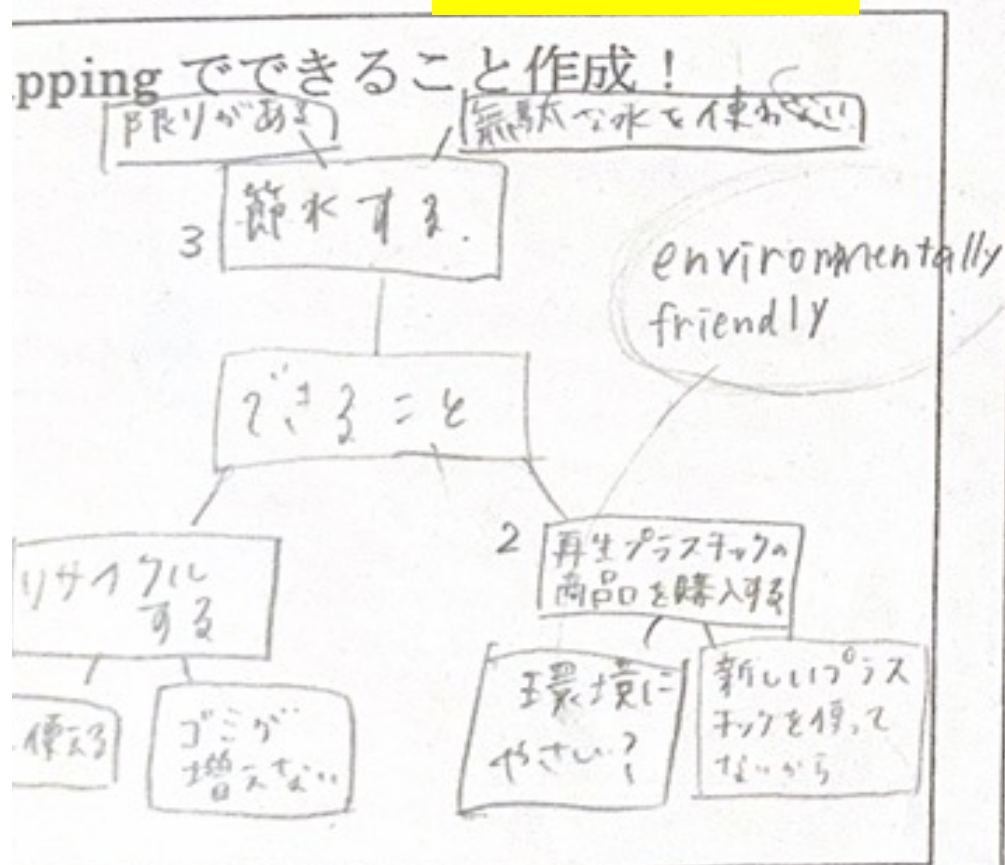 pping でできること作成！
限りがある
無駄な水を使わない
節水する.
3
environmentally
friendly
できること
リサイクル
する
2
再生プラスチックの
商品を購入する
使える
ゴミが
増えない
環境に
やさしい?
新しいプラス
チックを使って
ないから